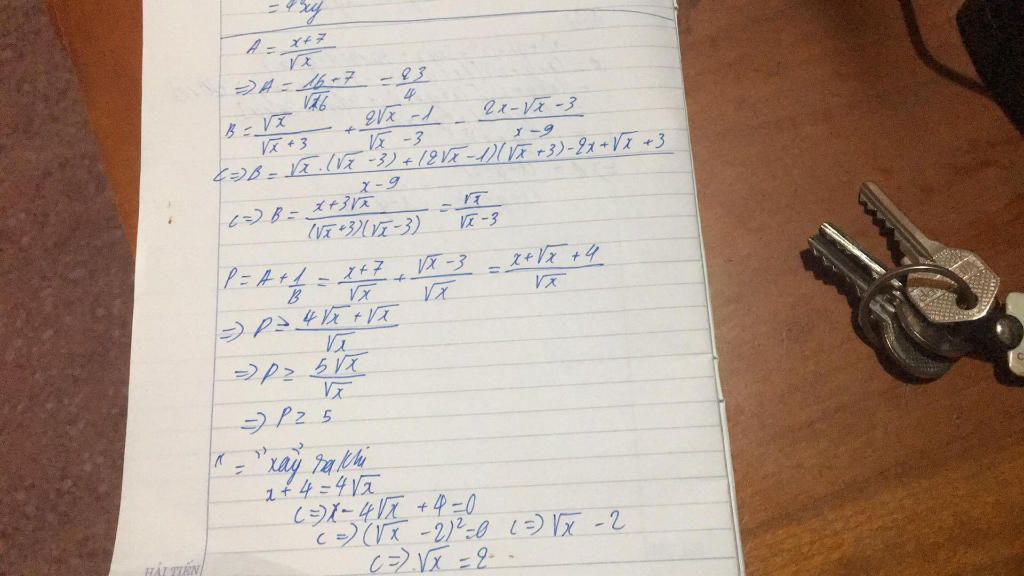 = 43xy
A = \frac{x+7}{\sqrt{x}}
=> A = \frac{16+7}{\sqrt{16}} = \frac{23}{4}
B = \frac{\sqrt{x}}{\sqrt{x}+3} + \frac{2\sqrt{x}-1}{\sqrt{x}-3} - \frac{2x-\sqrt{x}-3}{x-9}
<=> B = \frac{\sqrt{x}.(\sqrt{x}-3)+(2\sqrt{x}-1)(\sqrt{x}+3)-2x+\sqrt{x}+3}{x-9}
<=> B = \frac{x+3\sqrt{x}}{(\sqrt{x}+3)(\sqrt{x}-3)} = \frac{\sqrt{x}}{\sqrt{x}-3}
P = A + \frac{1}{B} = \frac{x+7}{\sqrt{x}} + \frac{\sqrt{x}-3}{\sqrt{x}} = \frac{x+\sqrt{x}+4}{\sqrt{x}}
=> P ≥ \frac{4\sqrt{x}+\sqrt{x}}{\sqrt{x}}
=> P ≥ \frac{5\sqrt{x}}{\sqrt{x}}
=> P ≥ 5
" = " xảy ra khi
x + 4 = 4\sqrt{x}
<=> x - 4\sqrt{x} + 4 = 0
<=> (\sqrt{x} - 2)^2 = 0 <=> \sqrt{x} - 2
<=> \sqrt{x} = 2
HẢI TIẾN